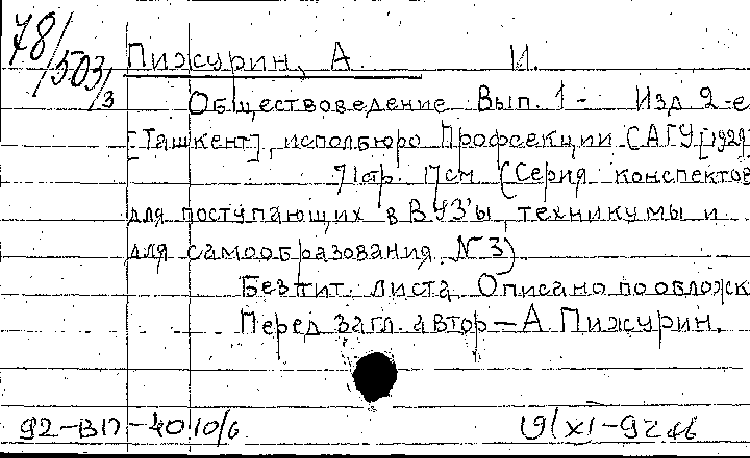 78/503/3
Пижурин, А. И.
Обществоведение Вып. 1 - Изд 2-е
[Ташкент], исполбюро Профсекции САГУ [1929]
71 стр. 17 см (Серия конспектов
для поступающих в ВУЗ'ы, техникумы и
для самообразования. N 3)
Без тит. листа Описано по обложк
Перед загл. автор — А Пижурин.
92-ВП-40 10/6